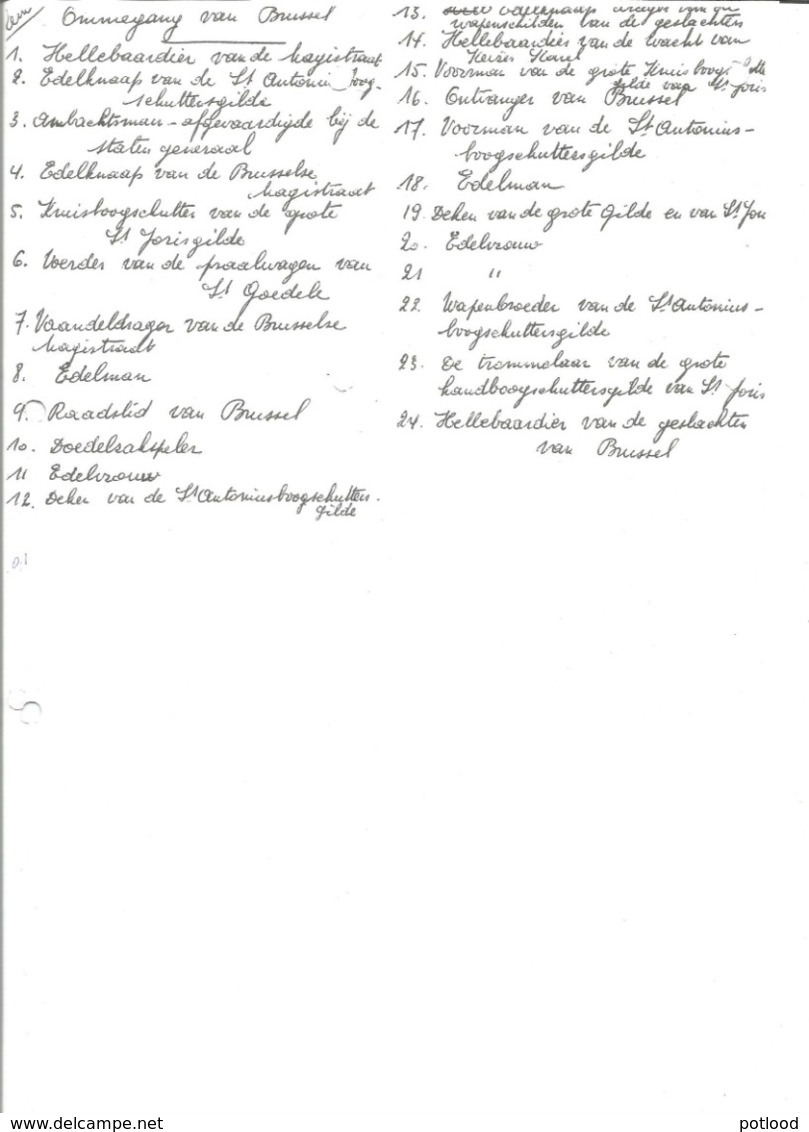 Ommegang van Brussel
1. Hellebaardier van de Magistraat
2. Edelknaap van de St Antonius boog-
schuttersgilde
3. Ambachtsman - afgevaardigde bij de
staten generaal
4. Edelknaap van de Brusselse
Magistraat
5. Kruisboogschutter van de grote
St Jorisgilde
6. Voerder van de praalwagen van
St Goedele
7. Vaandeldrager van de Brusselse
Magistraat
8. Edelman
9. Raadslid van Brussel
10. Doedelzakspeler
11 Edelvrouw
12. Deken van de St Antoniusboogschutters.
gilde
13. van de
wapenschilden van de geslachten
14. Hellebaardier van de wacht van
Keizer Karel
15. Voorman van de grote Kruisboogs
gilde van St Joris
16. Ontvanger van Brussel
17. Voorman van de St Antonius-
boogschuttersgilde
18. Edelman
19. Deken van de grote Gilde en van St Jon
20. Edelvrouw
21 "
22. Wapenbroeder van de St Antonius-
boogschuttersgilde
23. De trommelaar van de grote
handboogschuttersgilde van St Joris
24. Hellebaardier van de geslachten
van Brussel
delcampe.net
potlood